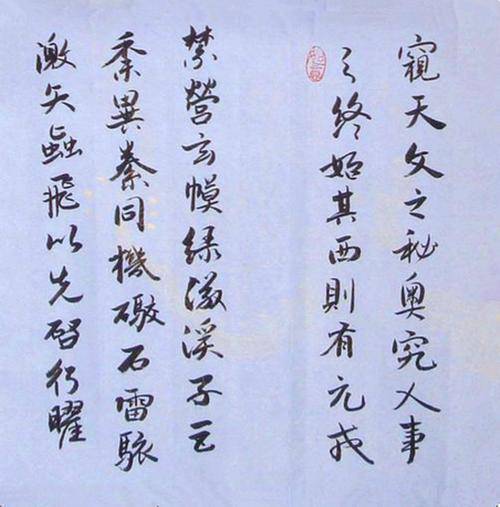 窺天文之秘奧究人事
之終始其西則有元戎
禁營玄幙緑徽溪子巨
黍異絭同機礮石雷駭
激矢蝱飛以先啓行曜